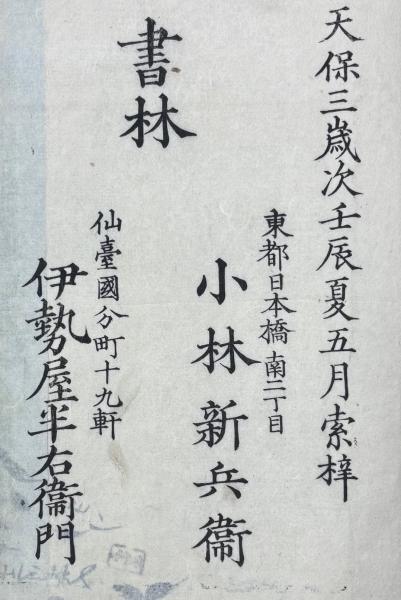 天保三歳次壬辰夏五月索梓
書林
東都日本橋南二丁目
小林新兵衞
仙臺國分町十九軒
伊勢屋半右衞門